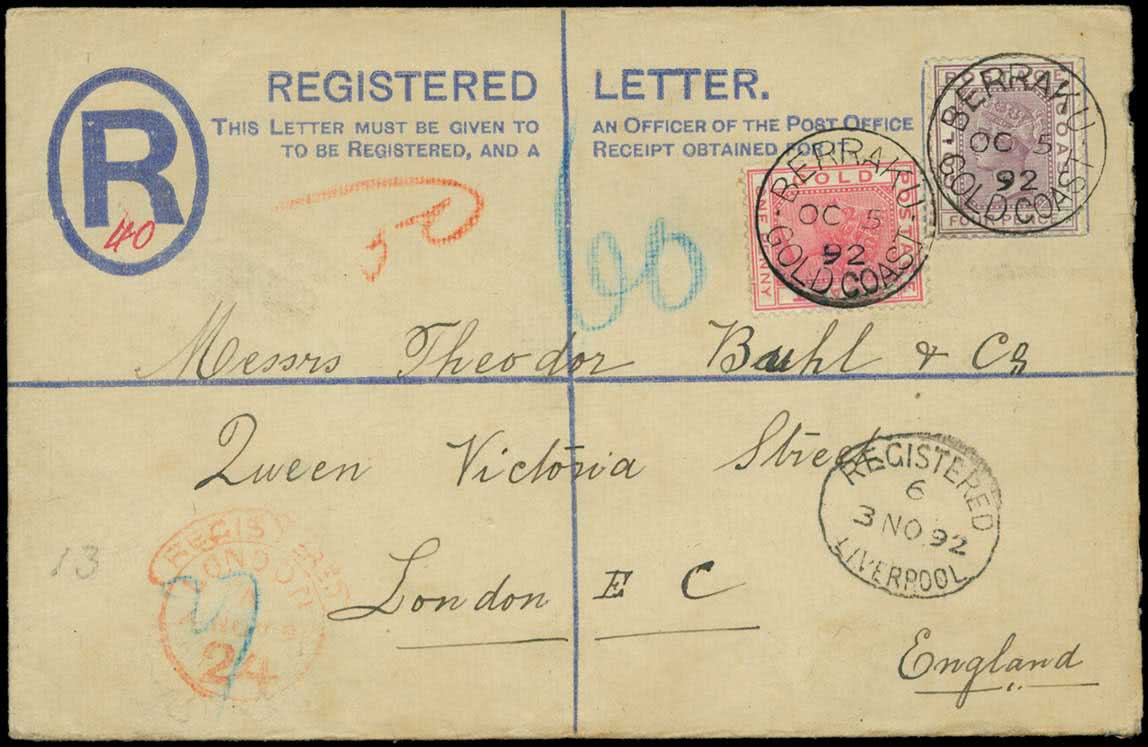 REGISTERED LETTER.
THIS LETTER MUST BE GIVEN TO AN OFFICER OF THE POST OFFICE
TO BE REGISTERED, AND A RECEIPT OBTAINED FOR
R
40
BERRAKU
OC 5
92
GOLD COAST
FOUR PENCE
GOLD COAST POSTAGE
ONE PENNY
BERRAKU
OC 5
92
GOLD COAST
Messrs Theodor Buhl & Co
Queen Victoria Street
REGISTERED
6
3 NO 92
LIVERPOOL
13
REGISTERED
LONDON
24
London E C
England